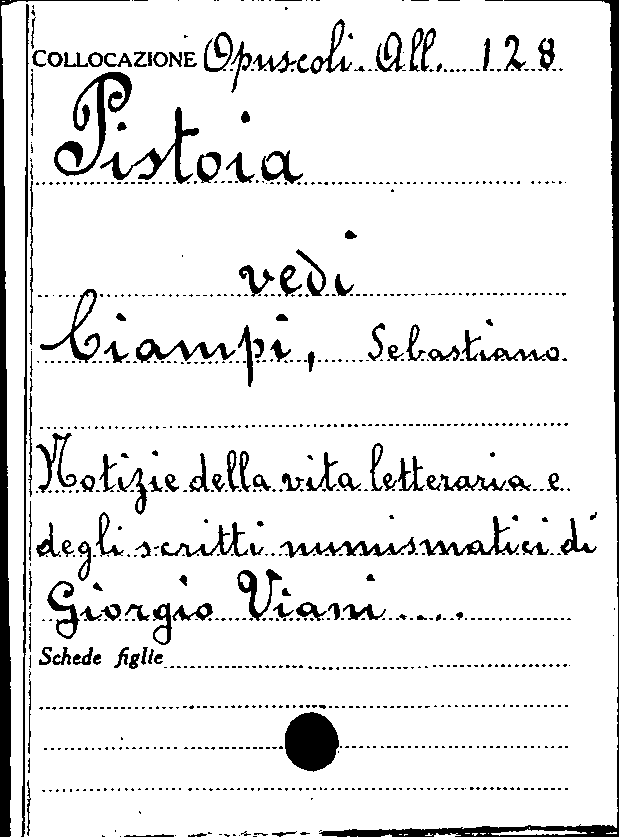 COLLOCAZIONE Opuscoli. All. 128
Pistoia
vedi
Ciampi, Sebastiano
Notizie della vita letteraria e
degli scritti numismatici di
Giorgio Viani....
Schede figlie